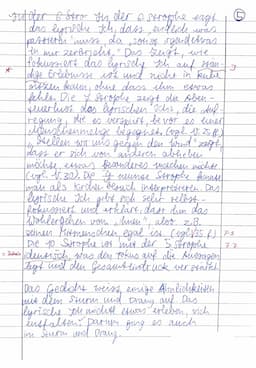 In der 6 Strophe sagt
das lyrische Ich, dass einfach was
passieren muss, da „sonst irgendetwas
in mir zerbricht." Das zeigt, wie
fokussiert das lyrische Ich auf
Erlebnisse ist und nicht in Ruhe
sitzen kann, ohne dass ihm etwas
fehlt. Die 7 Strophe zeigt die Aben-
teuerlust des lyrischen Ichs, die Auf-
regung, die es verspürt, bevor es einer
Menschenmenge begegnet (vgl. V. 25 ff)
„stellen wir uns gegen den Wind" zeigt,
dass er sich von anderen abheben
möchte, etwas besonderes machen möchte
(vgl. V. 30). Die 9 Strophe könnte
man als interpretieren. Das
lyrische Ich gibt sich sehr selbst-
fokussiert und erklärt, dass ihm das
Wohlergehen von „ihnen", also z.B.
seinen Mitmenschen, egal ist (vgl. V 35 f.)
Die 10 Strophe ist mit der 5 Strophe
identisch, was den Fokus auf die Aussagen
legt und den Gesamteindruck verstärkt.
Das Gedicht weist einige Ähnlichkeiten
mit dem Sturm und Drang auf. Das
lyrische Ich möchte etwas erleben, sich
entfalten. Darum ging es auch
im Sturm und Drang.